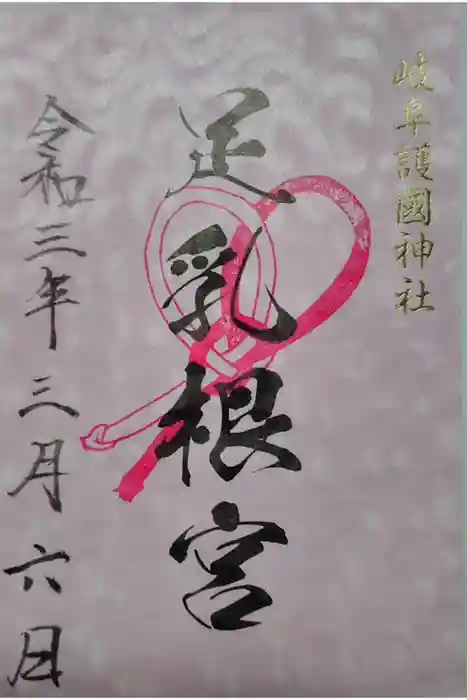 岐阜護國神社
足乳根宮
令和三年三月六日